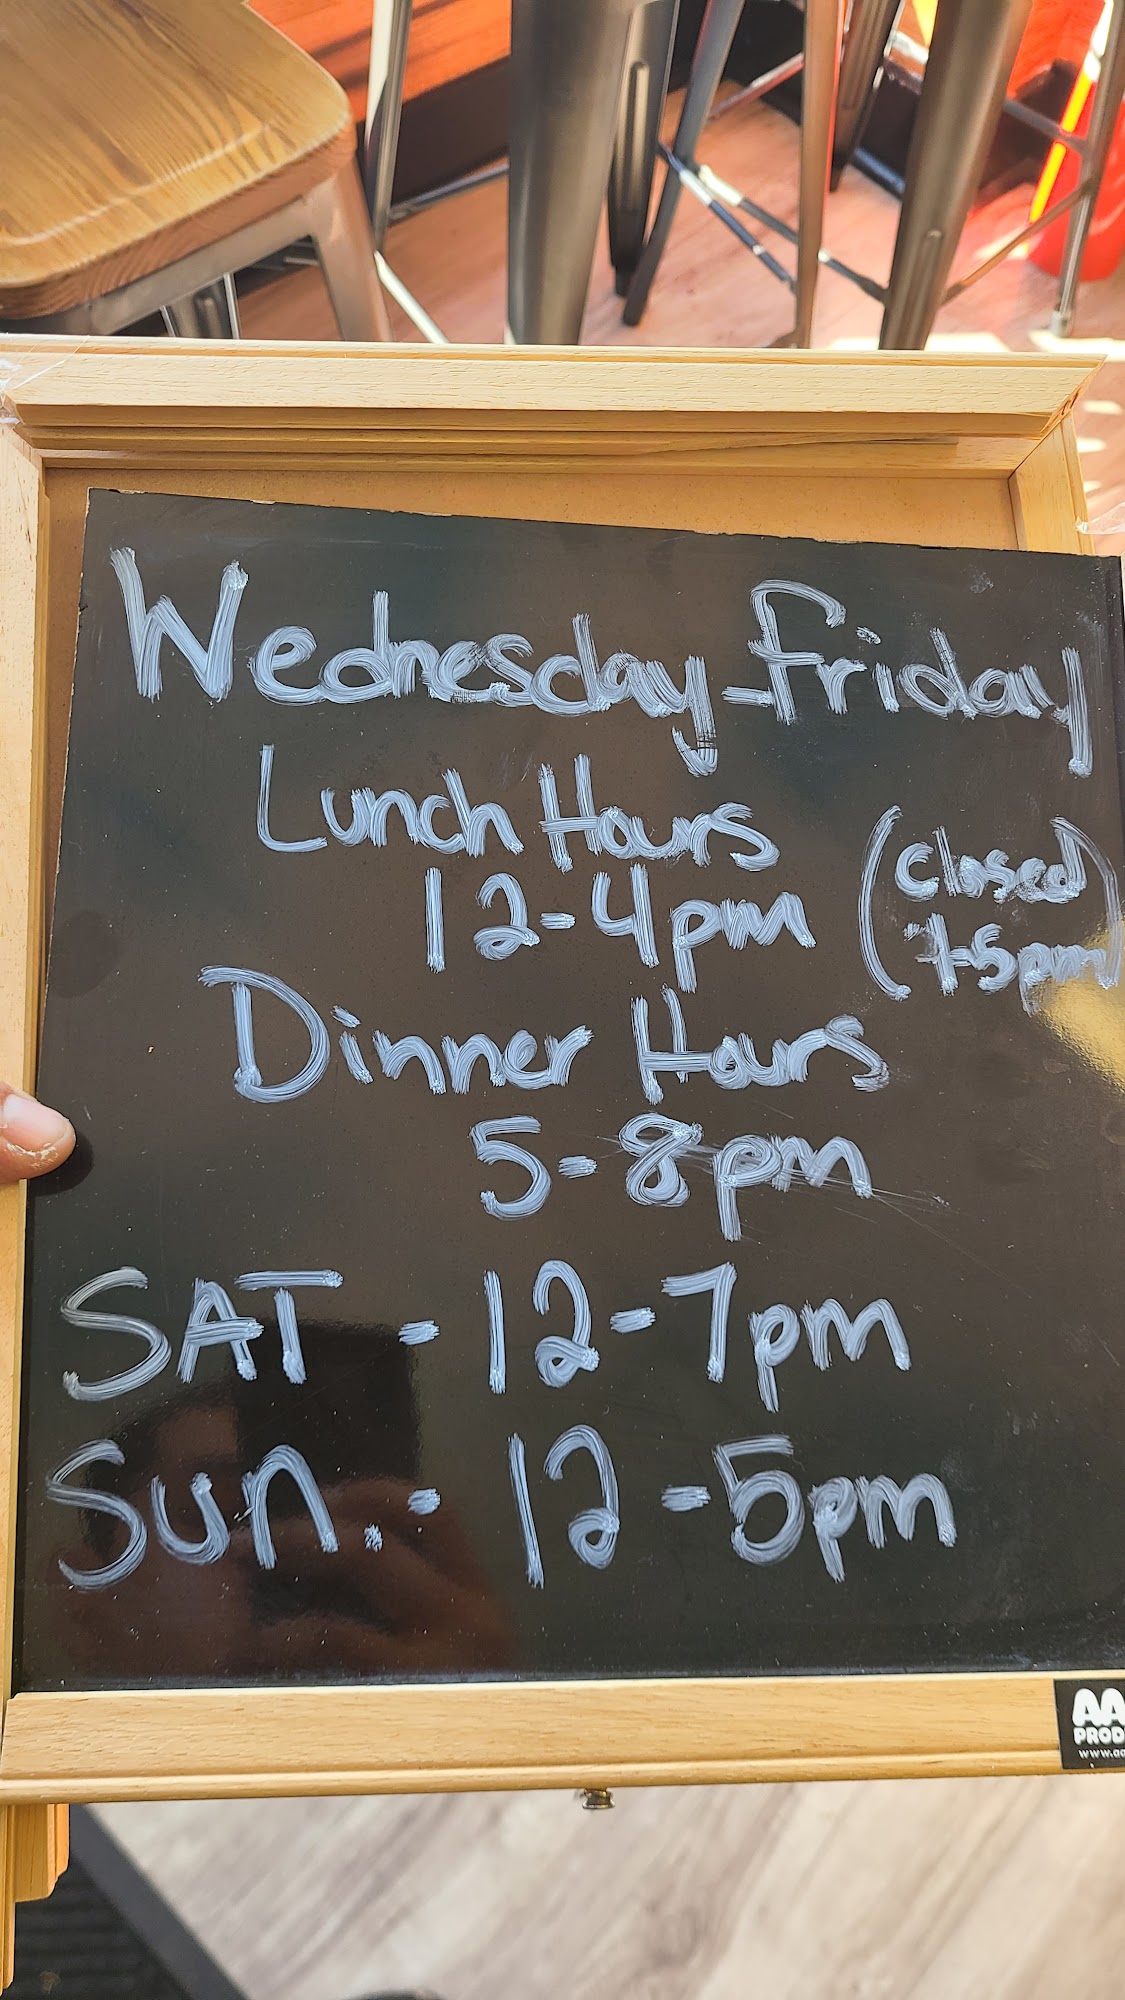 Wednesday-friday
Lunch Hours
12-4pm
(closed
4-5pm)
Dinner Hours
5-8pm
SAT - 12-7pm
Sun. - 12-5pm
AA
PROD
www.aa